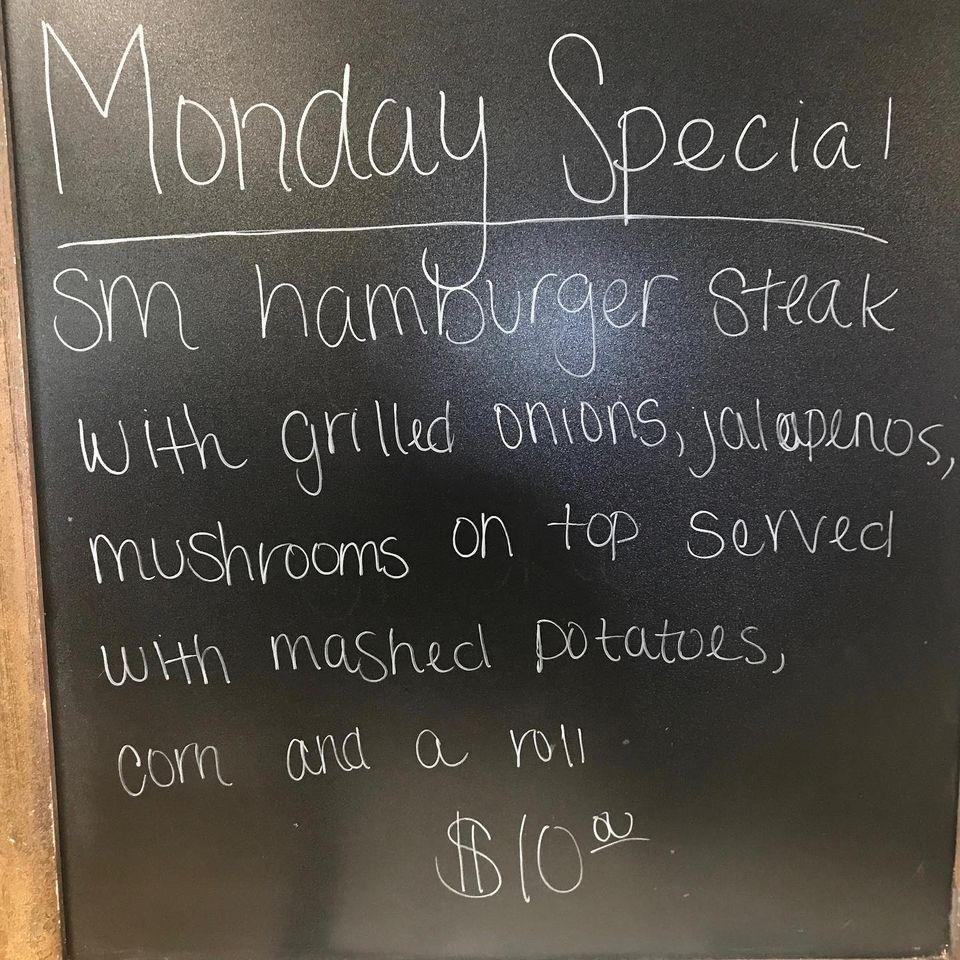 Monday Special
sm hamburger steak
with grilled onions, jalapenos,
mushrooms on top served
with mashed potatoes,
corn and a roll
$10 00